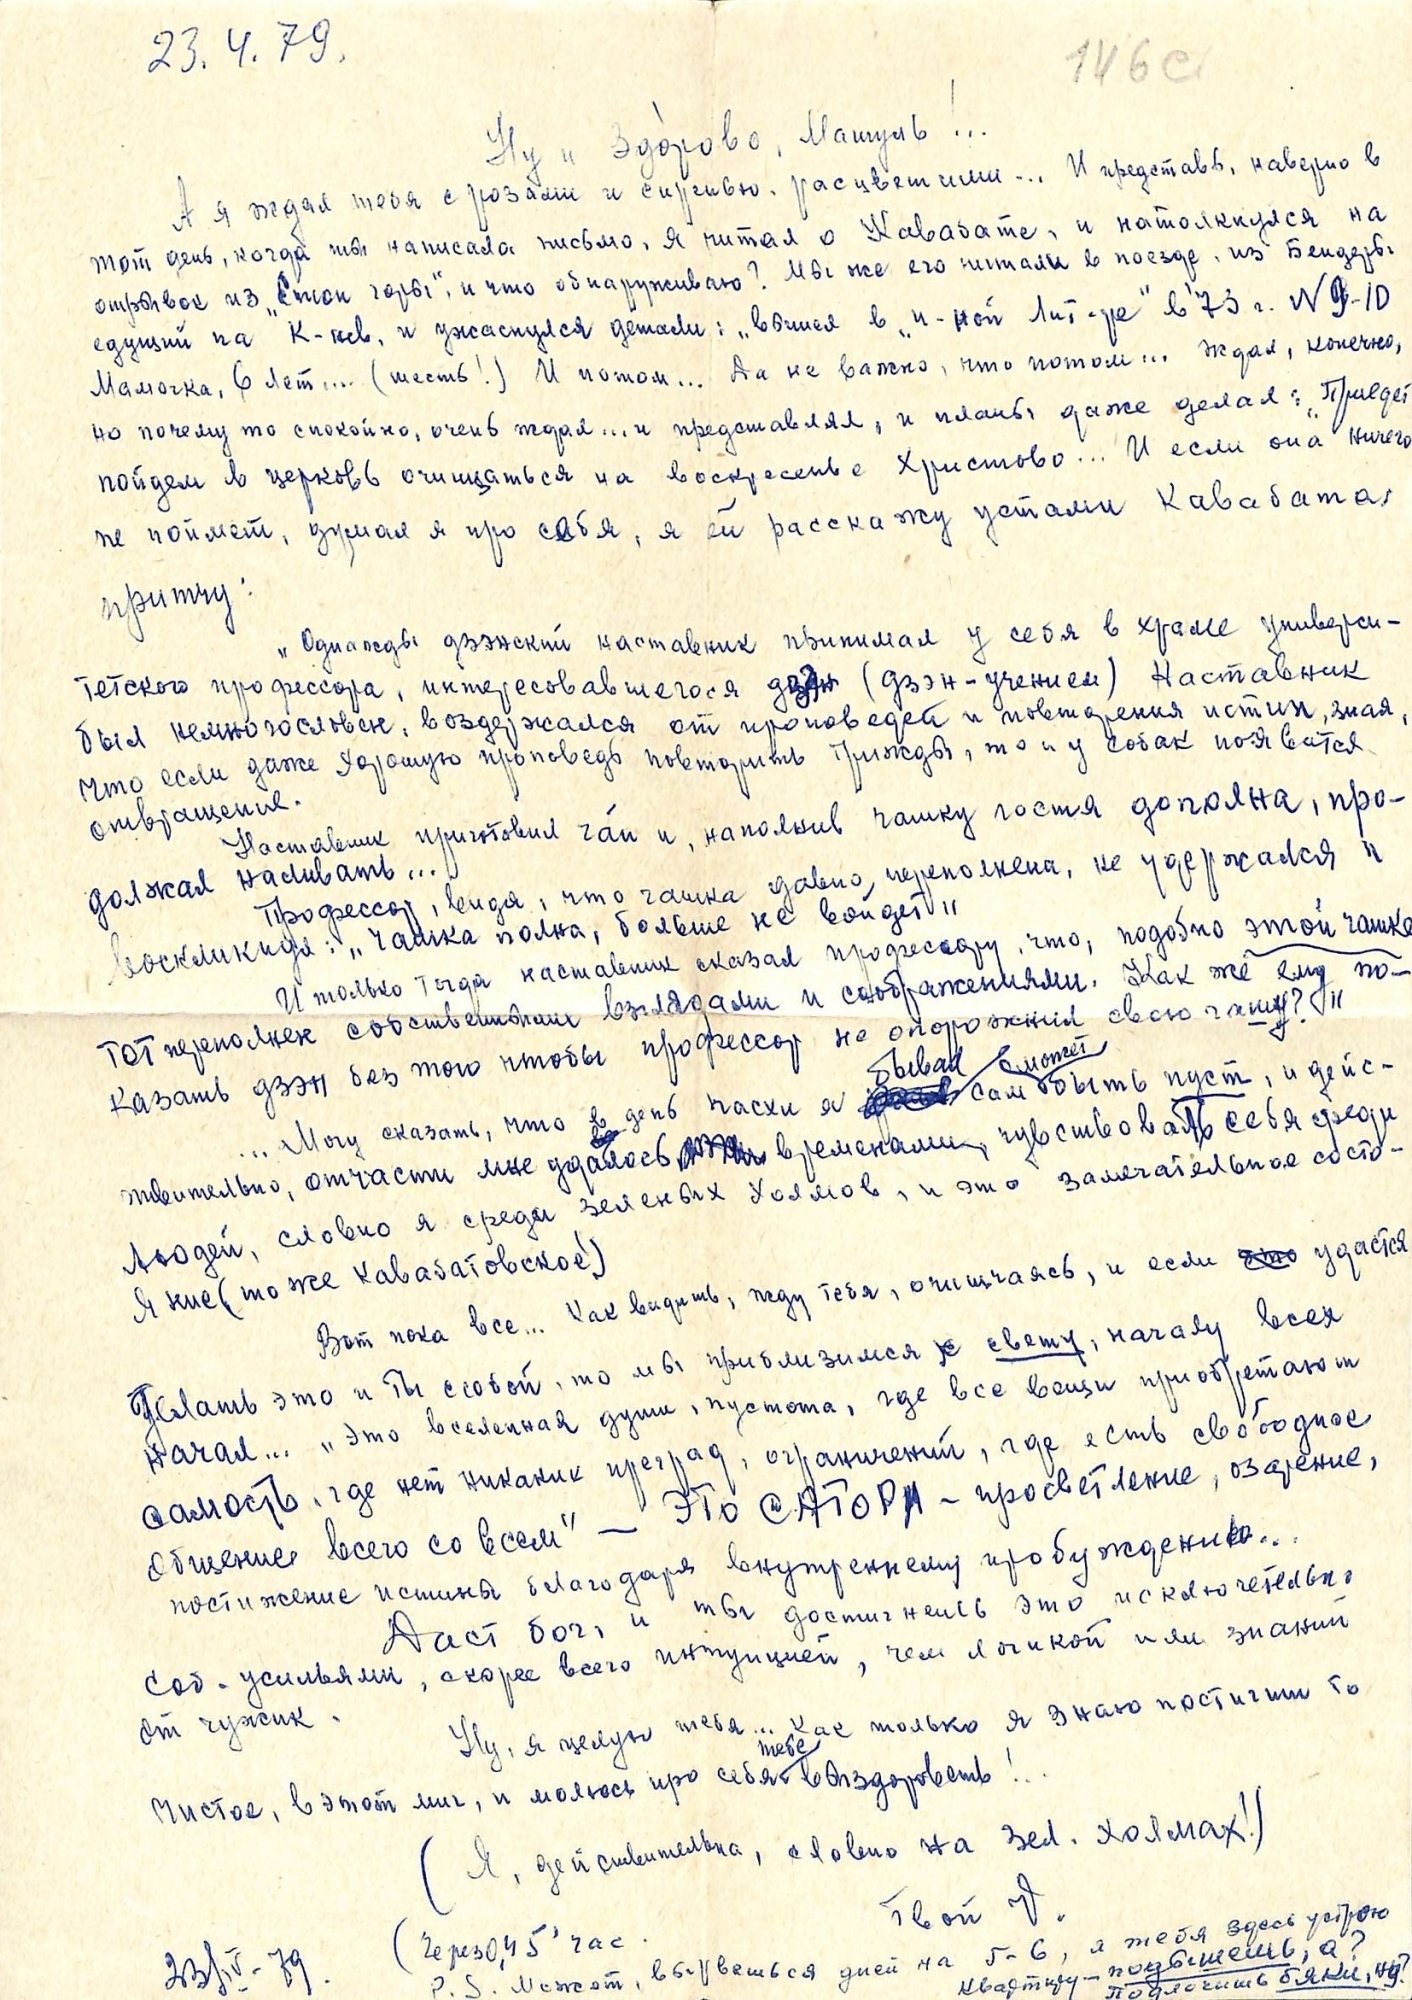 23.4.79.
146с
Ну и здорово, Машуль!...
А я ждал тебя с розами и сиренью. расцветшими... И представь, наверно в
тот день, когда ты написала письмо, я читал о Кавабате, и натолкнулся на
отрывок из "Стон горы", и что обнаруживаю? Мы же его читали в поезде, из Бендеры
едущий на К-нев, и ужаснулся детали: "вышел в "и-ной Лит-ре" в 73 г. N 9-10
Мамочка, 6 лет... (шесть!) И потом... Да не важно, что потом... ждал, конечно,
но почему то спокойно, очень ждал... и представлял, и планы даже делал: "Приедет
пойдем в церковь очищаться на воскресенье Христово... И если она ничего
не поймет, думал я про себя, я ей расскажу устами Кавабата
притчу:
"Однажды дзэнский наставник принимал у себя в храме универси-
тетского профессора, интересовавшегося дзэн (дзэн-учением) Наставник
был немногословен, воздержался от проповедей и повторения истин, зная,
что если даже хорошую проповедь повторить трижды, то и у собак появится
отвращение.
Наставник приготовил чай и, наполнив чашку гостя дополна, про-
должал наливать...
Профессор, видя, что чашка давно переполнена, не удержался и
воскликнул: "Чашка полна, больше не войдет"
И только тогда наставник сказал профессору, что, подобно этой чашке
тот переполнен собственными взглядами и соображениями. Как же ему по-
казать дзэн без того чтобы профессор не опорожнил свою чашу?"
... Могу сказать, что в день пасхи я бывал сам может быть пуст, и дейс-
твительно, отчасти мне удавалось временами, чувствовать себя среди
людей, словно я среди зеленых холмов, и это замечательное состо-
яние (тоже кавабатовское!)
Вот пока все... Как видишь, жду тебя, очищаясь, и если удастся
делать это и Ты с собой, то мы приблизимся к свету, началу всех
начал... "это вселенная души, пустота, где все вещи приобретают
самость, где нет никаких преград, ограничений, где есть свободное
общение всего со всем" — ЭТО САТОРИ – просветление, озарение,
постижение истины благодаря внутреннему пробуждению...
Даст бог, и ты достигнешь это исключительно
соб. усильями, скорее всего интуицией, чем логикой или знаний
от чужих.
Ну, я целую тебя... Как только я знаю постигши то
чистое, в этот миг, и молюсь про себя тебе выздороветь!...
(Я, действительно, словно на зел. холмах!)
Твой V.
(Через 0,45 час.
23/IV-79.
P.S. Может, вырвешься дней на 5-6, я тебя здесь устрою
Квартиру – подышешь, а?
Подлечишь бяки, ну?